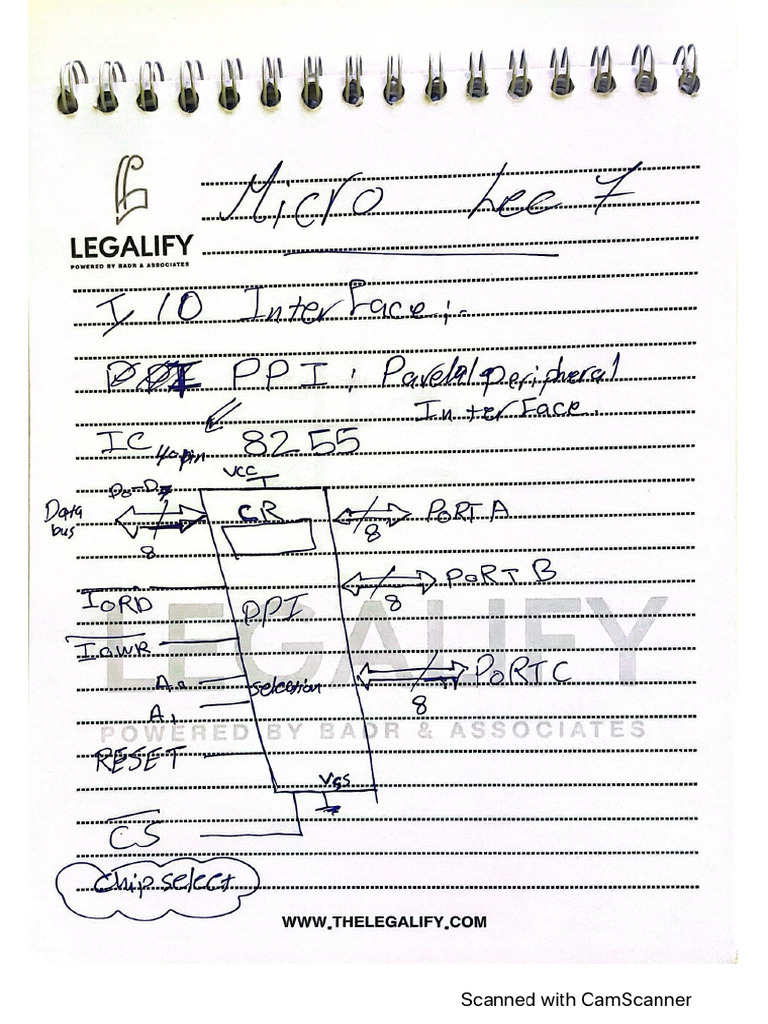 Micro Lec 7
LEGALIFY
POWERED BY BADR & ASSOCIATES
I/O Interface:-
PPI: Parelal peripheral
Interface.
IC 40 pin 8255
VCC
D0-D7
Data
bus
8
CR
8
PORT A
IORD
PPI
8
PORT B
LEGALIFY
IOWR
A0
selection
8
PORT C
A1
POWERED BY BADR & ASSOCIATES
RESET
VSS
CS
chip select
WWW.THELEGALIFY.COM
Scanned with CamScanner